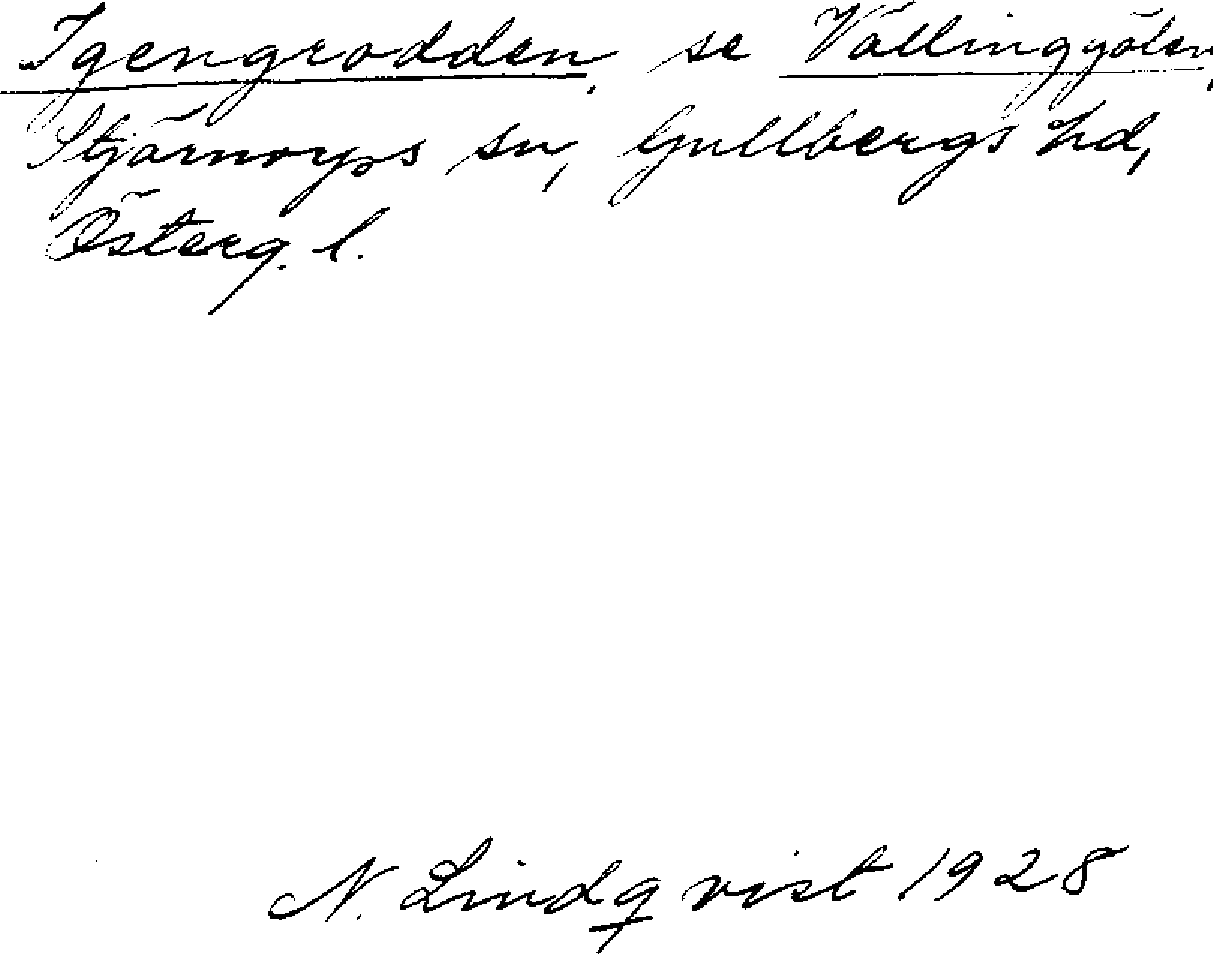 Igengrodden, se Vällinggölen,
Stjärnorps sn, Gullbergs hd,
Österg. l.
N. Lindqvist 1928